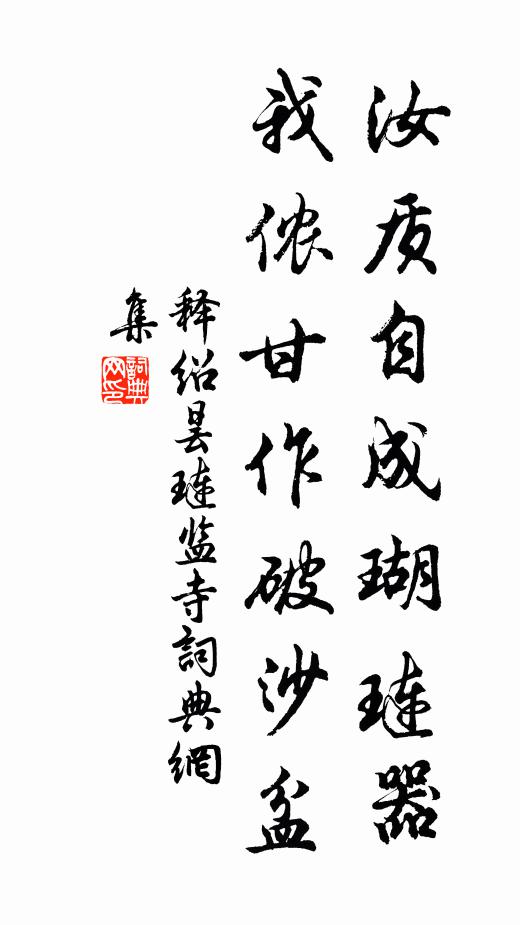 汝质自成瑚琏器
我侬甘作破沙盆
释绍昙琏监寺詞典網
集
詞典
网印